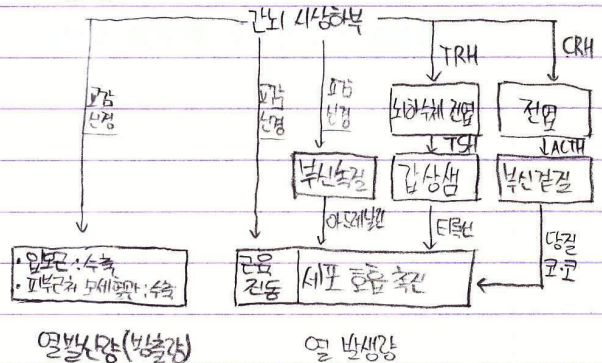 간뇌 시상하부
TRH
CRH
교감
신경
교감
신경
교감
신경
뇌하수체 전엽
전엽
TSH
ACTH
부신속질
갑상샘
부신겉질
아드레날린
티록신
당질
코·코
• 입모근 : 수축
• 피부근처 모세혈관 : 수축
근육
진동
세포 호흡 촉진
열발산량(방출량)
열 발생량